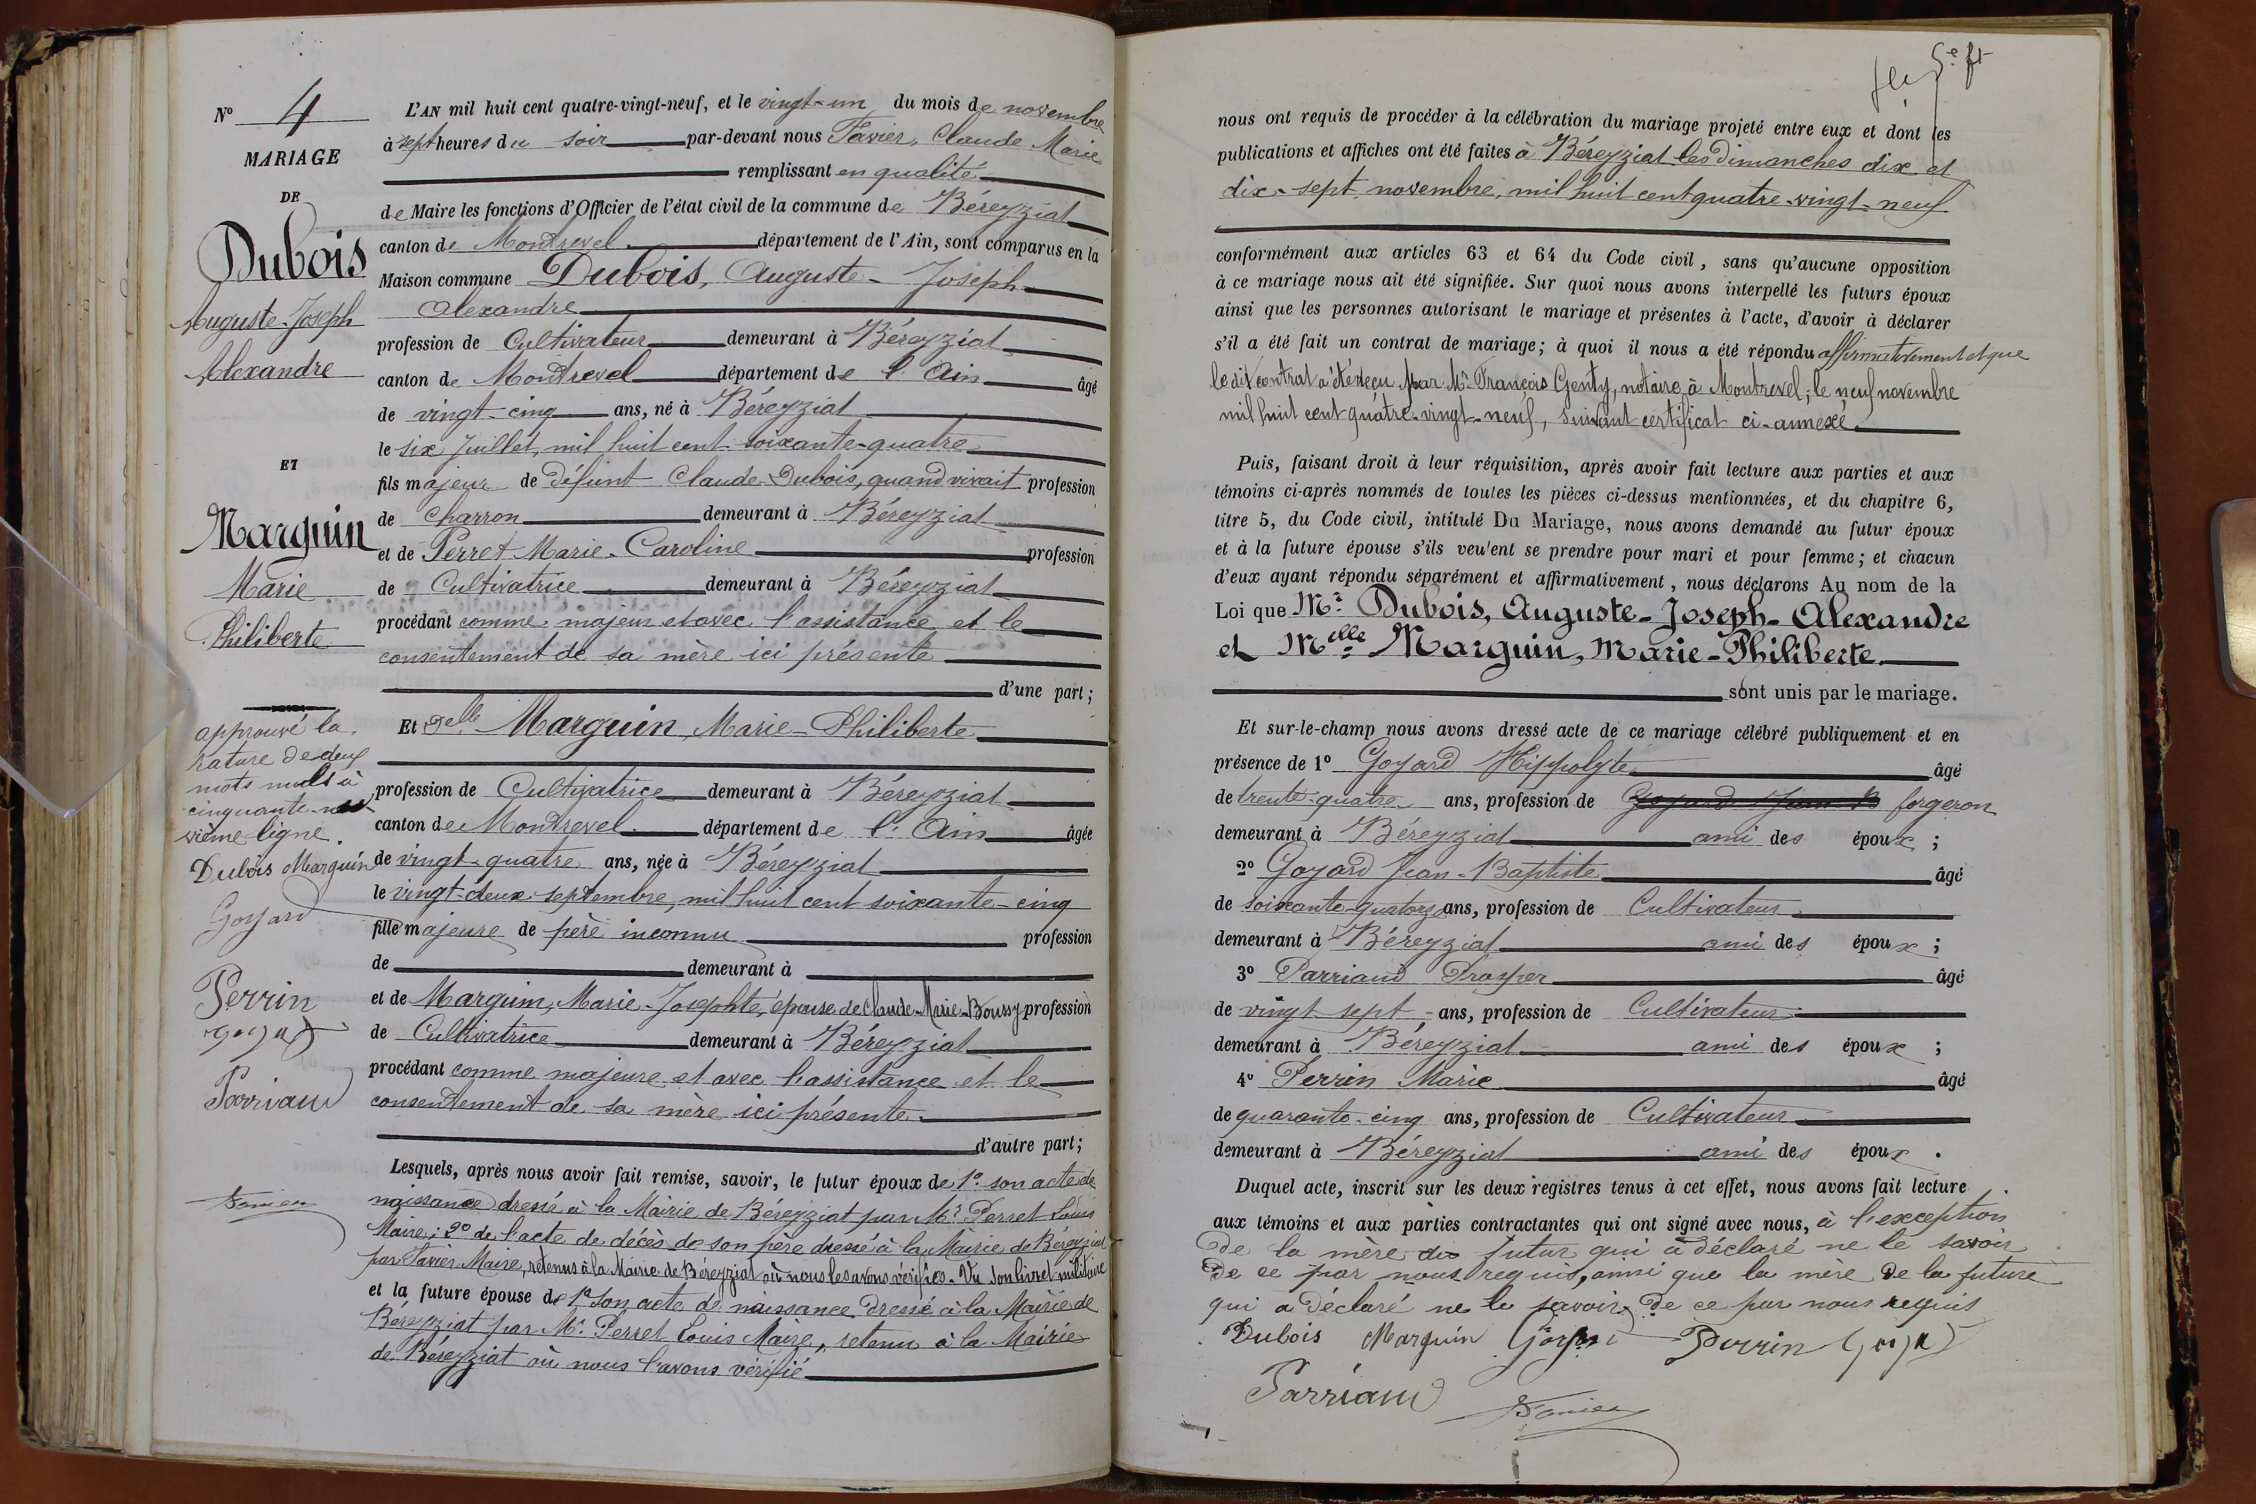 N° 4
MARIAGE
DE
Dubois
Auguste-Joseph
Alexandre
ET
Marguin
Marie
Philiberte
approuvé la
rature de deux
mots nuls à
cinquante-neuvième ligne.
Dubois Marguin
Goyard
Perrin
goyard
Parriaud
Favier
L'AN mil huit cent quatre-vingt-neuf, et le vingt-un du mois de novembre
à sept heures du soir par-devant nous Favier, Claude Marie
remplissant en qualité
de Maire les fonctions d'Officier de l'état civil de la commune de Béreyziat
canton de Montrevel département de l'Ain, sont comparus en la
Maison commune Dubois, Auguste-Joseph-
Alexandre
profession de Cultivateur demeurant à Béreyziat
canton de Montrevel département de l'Ain âgé
de vingt-cinq ans, né à Béreyziat
le six Juillet, mil huit cent soixante-quatre
fils majeur de défunt Claude Dubois, quand vivait profession
de charron demeurant à Béreyziat
et de Perret Marie-Caroline profession
de Cultivatrice demeurant à Béreyziat
procédant comme majeur et avec l'assistance et le
consentement de sa mère ici présente
d'une part;
Et Delle Marguin, Marie-Philiberte
profession de Cultivatrice demeurant à Béreyziat
canton de Montrevel département de l'Ain âgée
de vingt-quatre ans, née à Béreyziat
le vingt-deux septembre, mil huit cent soixante-cinq
fille majeure de père inconnu profession
de demeurant à
et de Marguin, Marie-Josephte, épouse de Claude-Marie-Boussy profession
de Cultivatrice demeurant à Béreyziat
procédant comme majeure et avec l'assistance et le
consentement de sa mère ici présente
d'autre part;
Lesquels, après nous avoir fait remise, savoir, le futur époux de 1° son acte de
naissance dressé à la Mairie de Béreyziat par Mr Perret Louis
Maire; 2° de l'acte de décès de son père dressé à la Mairie de Béreyziat
par Favier Maire, retenus à la Mairie de Béreyziat où nous les avons vérifiés. Vu son livret militaire
et la future épouse de 1° son acte de naissance dressé à la Mairie de
Béreyziat par Mr Perret Louis Maire, retenu à la Mairie
de Béreyziat où nous l'avons vérifié
nous ont requis de procéder à la célébration du mariage projeté entre eux et dont les
publications et affiches ont été faites à Béreyziat les dimanches dix et
dix-sept novembre, mil huit cent quatre-vingt-neuf
conformément aux articles 63 et 64 du Code civil, sans qu'aucune opposition
à ce mariage nous ait été signifiée. Sur quoi nous avons interpellé les futurs époux
ainsi que les personnes autorisant le mariage et présentes à l'acte, d'avoir à déclarer
s'il a été fait un contrat de mariage; à quoi il nous a été répondu affirmativement et que
le dit contrat a été reçu par Me François Genty, notaire à Montrevel, le neuf novembre
mil huit cent quatre-vingt-neuf, suivant certificat ci-annexé.
Puis, faisant droit à leur réquisition, après avoir fait lecture aux parties et aux
témoins ci-après nommés de toutes les pièces ci-dessus mentionnées, et du chapitre 6,
titre 5, du Code civil, intitulé Du Mariage, nous avons demandé au futur époux
et à la future épouse s'ils veulent se prendre pour mari et pour femme; et chacun
d'eux ayant répondu séparément et affirmativement, nous déclarons Au nom de la
Loi que Mr Dubois, Auguste-Joseph-Alexandre
et Melle Marguin, Marie-Philiberte
sont unis par le mariage.
Et sur-le-champ nous avons dressé acte de ce mariage célébré publiquement et en
présence de 1° Goyard Hippolyte âgé
de trente-quatre ans, profession de forgeron
demeurant à Béreyziat ami des époux ;
2° Goyard Jean-Baptiste âgé
de soixante-quatorze ans, profession de Cultivateur
demeurant à Béreyziat ami des époux ;
3° Parriaud Prosper âgé
de vingt sept ans, profession de Cultivateur
demeurant à Béreyziat ami des époux ;
4° Perrin Marie âgé
de quarante-cinq ans, profession de Cultivateur
demeurant à Béreyziat ami des époux.
Duquel acte, inscrit sur les deux registres tenus à cet effet, nous avons fait lecture
aux témoins et aux parties contractantes qui ont signé avec nous, à l'exception
de la mère du futur qui a déclaré ne le savoir
de ce par nous requis, ainsi que la mère de la future
qui a déclaré ne le savoir de ce par nous requis
Dubois Marguin Goyard Perrin goyard
Parriaud Favier